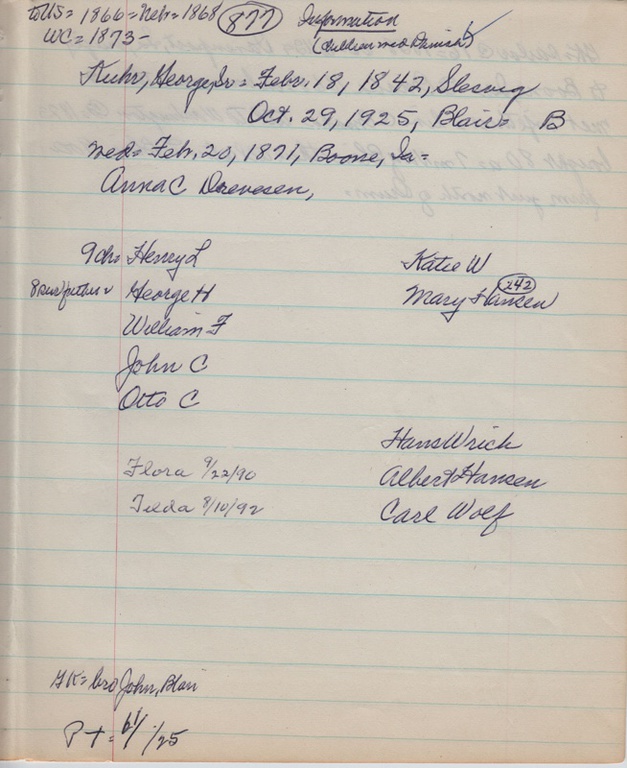 to US = 1866 = Neb = 1868 877 Information
WC = 1873 - (children med Danish)
Kuhr, George, Sr = Febr. 18, 1842, Slesvig
Oct. 29, 1925, Blair = B
med = Feb. 20, 1871, Boone, Ia =
Anna C Drevesen,
9 ch = Henry L Katie W
George H Mary Hansen 242
William F
John C
Otto C
Hans Wrich
Flora 9/22/90 Albert Hansen
Tilda 8/10/92 Carl Wolf
GK = bro John, Blair
P T = /25